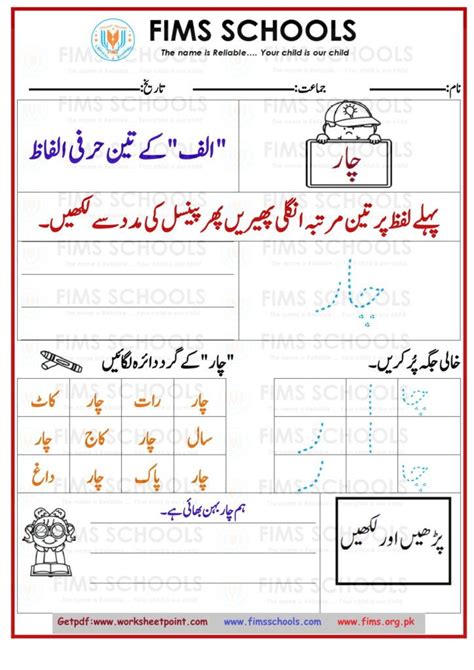 FIMS SCHOOLS
The name is Reliable.... Your child is our child
نام: جماعت: تاریخ:
چار
"الف" کے تین حرفی الفاظ
پہلے لفظ پر تین مرتبہ انگلی پھیریں پھر پینسل کی مدد سے لکھیں۔
چار
خالی جگہ پُر کریں۔
"چار" کے گرد دائرہ لگائیں
چا
ا
ر
چار رات چار کاٹ
سال چار کاج چار
چار پاک چار داغ
پڑھیں اور لکھیں
ہم چار بہن بھائی ہے۔
Getpdf:www.worksheetpoint.com www.fimsschools.com www.fims.org.pk